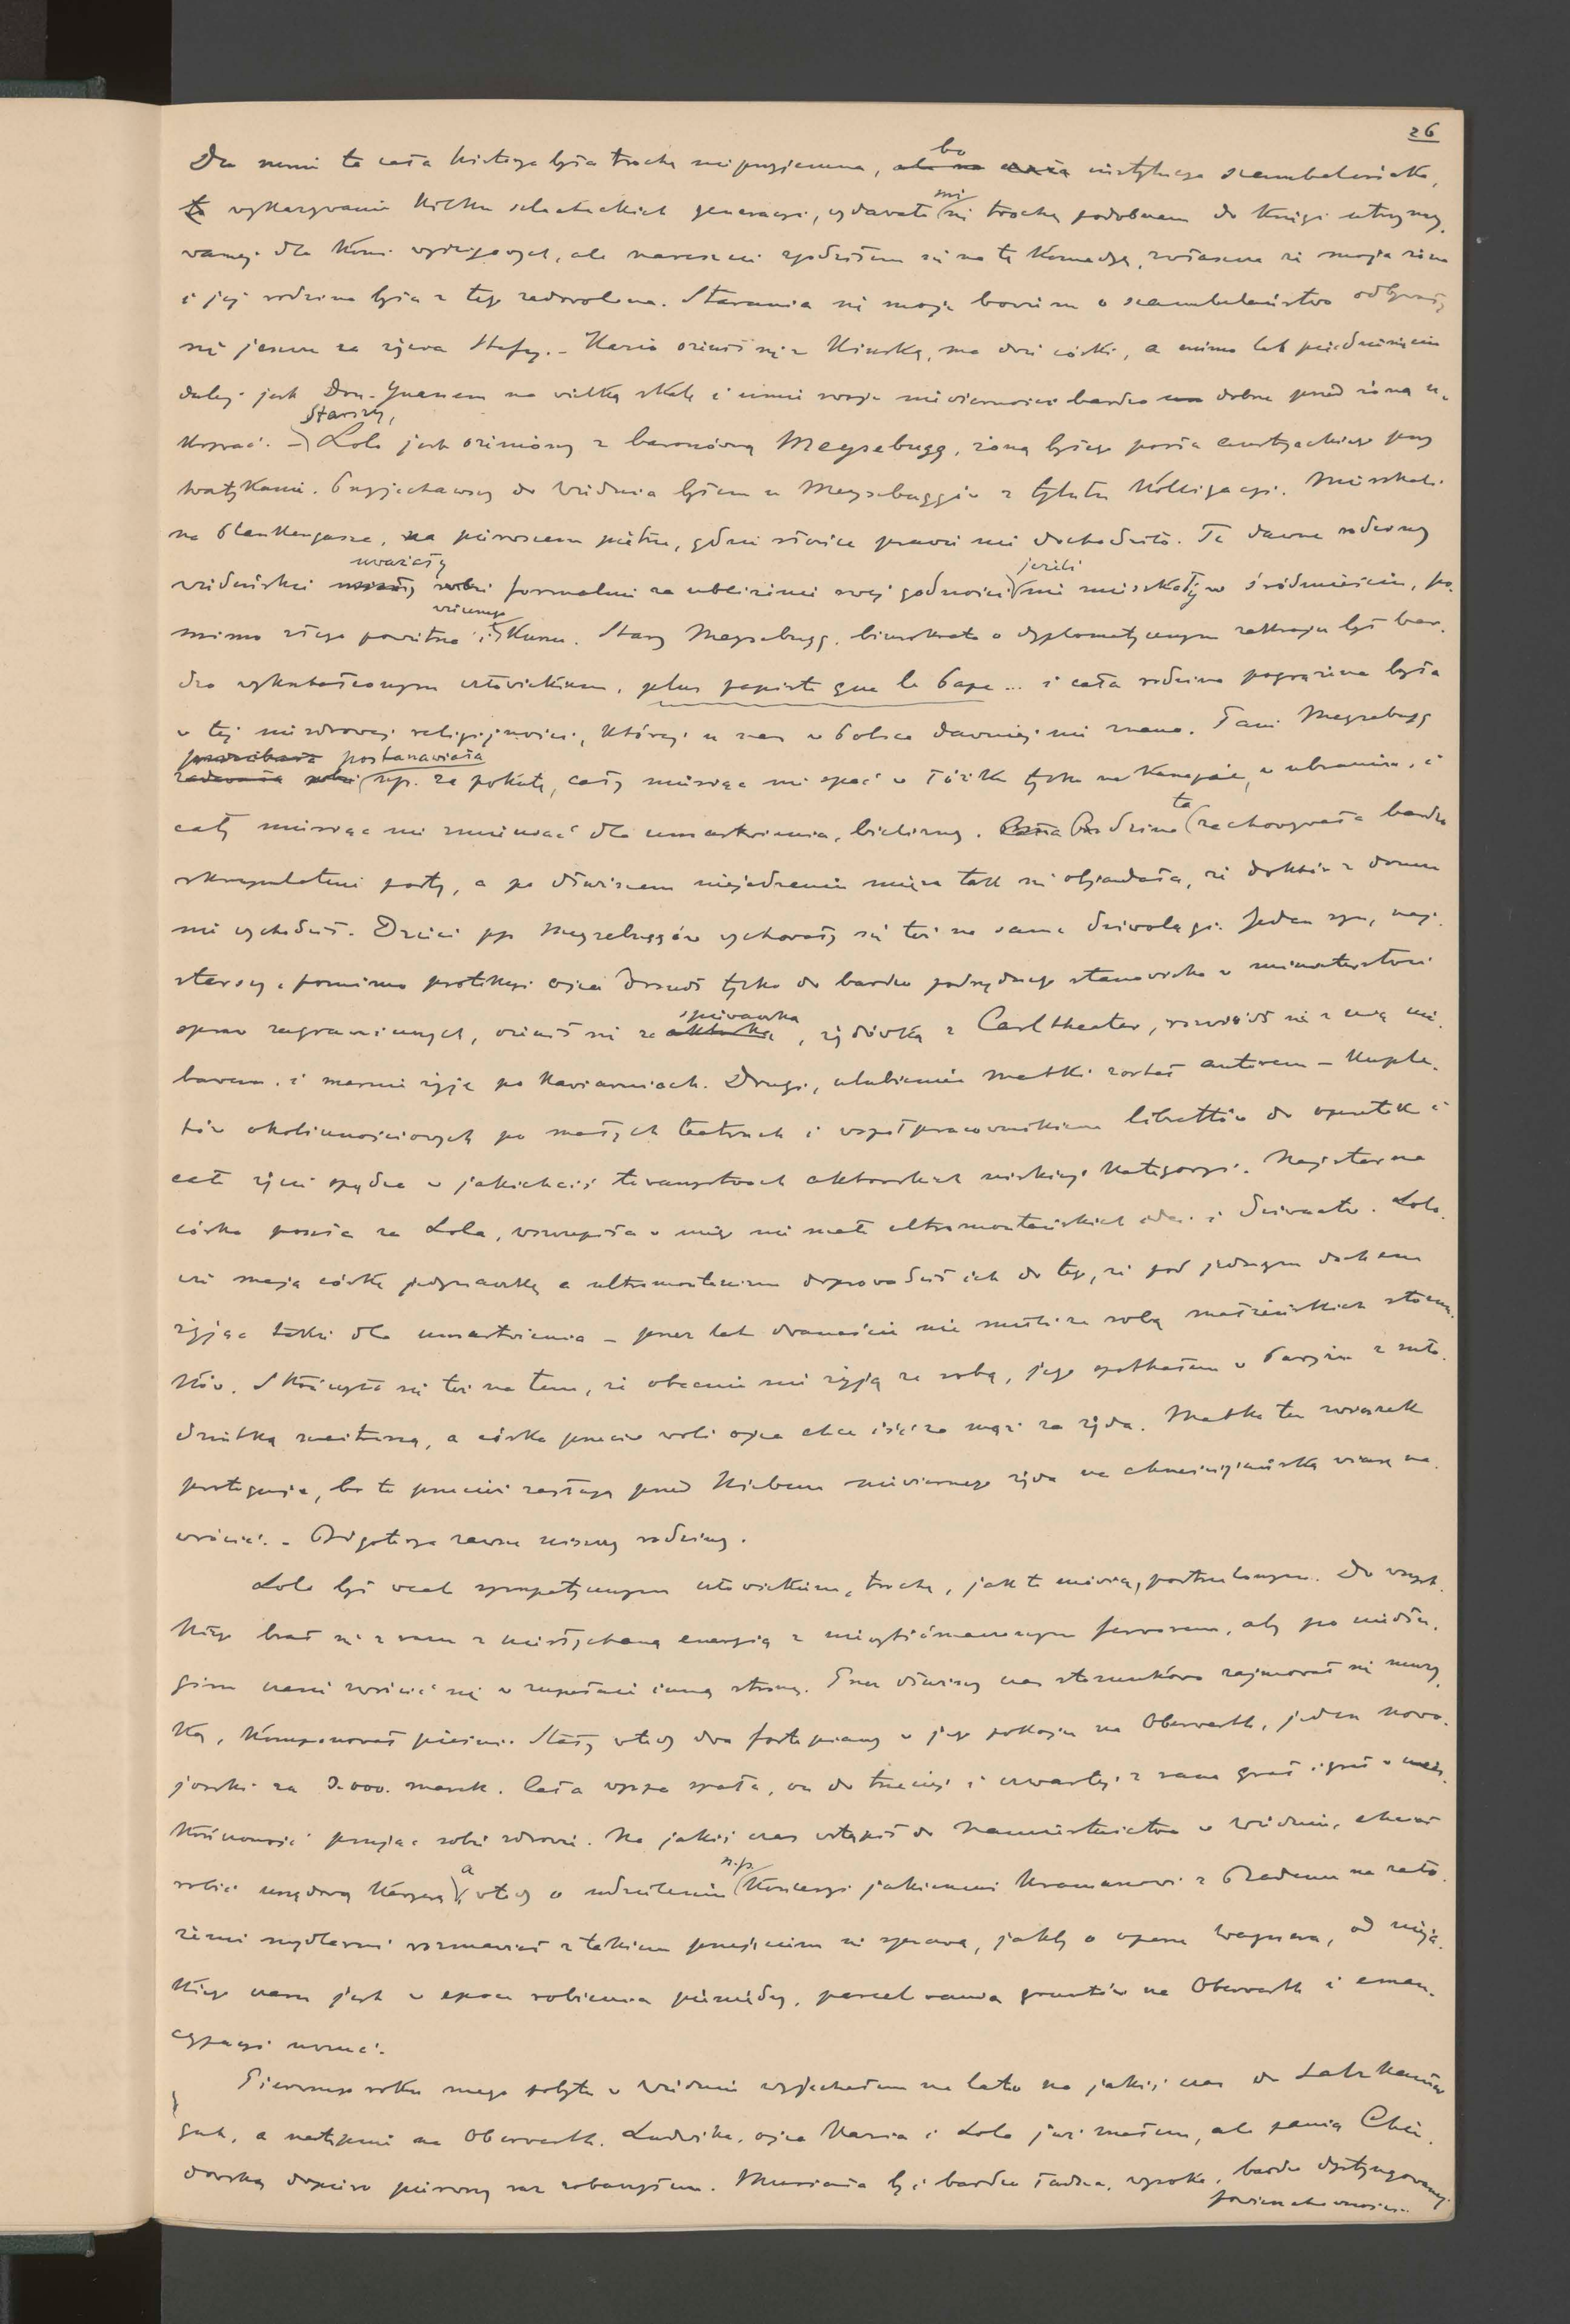 26
Dla mnie ta cała historya była trochę nieprzyjemna, bo instytucya szambelańska,
to wykazywanie kilku szlacheckich generacyi, wydawało mi się trochę podobnem do księgi utrzymy-
wanej dla koni wyścigowych, ale nareszcie zgodziłem się na tę komedyę, zwłaszcza że moja żona
i jej rodzina była z tego zadowolona. Starania się moje bowiem o szambelaństwo odbywały
się jeszcze za życia Stefy. – Kazio ożenił się z Kinską, ma dwie córki, a mimo lat pięćdziesięciu
dalej jest Don-Juanem na wielką skalę i umie swoje niewierności bardzo dobrze przed żoną u-
krywać. – Starszy, Lolo jest ożeniony z baronówną Meysebugg, żoną byłego posła austryackiego przy
Watykanie. Przyjechawszy do Wiednia byłem u Meysebuggów z tytułu kolligacyi. Mieszkali
na Plankengasse, na pierwszem piętrze, gdzie słońce prawie nie dochodziło. Te dawne rodziny
wiedeńskie uważały formalnie za ubliżenie swej godności jeżeli nie mieszkały w śródmieściu, po-
mimo złego powietrza i wiecznego kurzu. Stary Meysebugg, biurokrata o dyplomatycznym zakroju był bar-
dzo wykształconym człowiekiem, plus papiste que le Pape ... i cała rodzina pogrążona była
w tej niezdrowej religijności, której u nas w Polsce dawniej nie znano. Pani Meysebugg
postanawiała np. za pokutę, cały miesiąc nie spać w łóżku tylko na kanapie, w ubraniu, i
cały miesiąc nie zmieniać dla umartwienia, bielizny. Rodzina ta zachowywała bardzo
skrupulatnie posty, a po dłuższem niejedzeniu mięsa tak się objadała, że doktór z domu
nie wychodził. Dzieci pp Meysebuggów wychowały się też na same dziwolągi. Jeden syn, naj-
starszy, pomimo protekcyi ojca doszedł tylko do bardzo podrzędnego stanowiska w ministerstwie
spraw zagranicznych, ożenił się ze śpiewaczką, żydówką z Carltheater, rozwiódł się z nią nie-
bawem i marnie żyje po kawiarniach. Drugi, ulubieniec matki został autorem – kuple-
tów okolicznościowych po małych teatrach i współpracownikiem librettów do operetek i
całe życie spędza w jakichciś towarzystwach aktorskich niskiej kategoryi. Najstarsza
córka poszła za Lola, wszczepiła w niego nie mało ultramontańskich idei i dziwactw. Lolo-
wie mają córkę jedynaczkę a ultramontanizm doprowadził ich do tego, że pod jednym dachem
żyjąc także dla umartwienia – przez lat dwanaście nie mieli ze sobą małżeńskich stosun-
ków. Skończyło się też na tem, że obecnie nie żyją ze sobą, jego spotkałem w Paryżu z mło-
dziutką metresą, a córka przeciw woli ojca chce iść za mąż za żyda. Matka ten związek
proteguje, bo to przecież zasługa przed Niebem niewiernego żyda na chrześcijańską wiarę na-
wrócić. – Bigoterya zawsze niszczy rodziny.
Lolo był wcale sympatycznym człowiekiem, trochę, jak to mówią, postrzelonym. Do wszyst-
kiego brał się z razu z niesłychaną energią z niewytłómaczonym ferworem, aby po niedłu-
gim czasie zwrócić się w zupełnie inną stronę. Przez dłuższy czas stosunkowo zajmował się muzy-
ką, komponował pieśni. Stały wtedy dwa fortepiany w jego pokoju na Oberwerth, jeden nowo-
jorski za 3.000. marek. Cała wyspa spała, on do trzeciej i czwartej z rana grał i grał w nies-
kończoność psując sobie zdrowie. Na jakiś czas wstąpił do Namiestnictwa w Wiedniu, chciał
robić urzędową karyerę, a wtedy o udzieleniu n.p. koncesyi jakiemuś kramarzowi z Badenu na zało-
żenie mydlarni rozmawiał z takiem przejęciem się sprawą, jakby o operze Wagnera, od nieja-
kiego czasu jest w epoce robienia pieniędzy, parcelowania gruntów na Oberwerth i eman-
cypacyi uczuć.
Pierwszego roku mego pobytu w Wiedniu wyjechałem na lato na jakiś czas do Salzkammer-
gut, a następnie na Oberwerth. Ludwika, ojca Kazia i Lola już znałem, ale panią Cho-
dowską dopiero pierwszy raz zobaczyłem. Musiała być bardzo ładna, wysoka, bardzo dystyngowanej
powierzchowności.